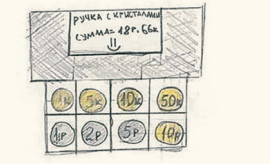 РУЧКА С КРИСТАЛАМИ
СУММА=18Р.66К
1К 5К 10К 50К
1Р 2Р 5Р 10Р